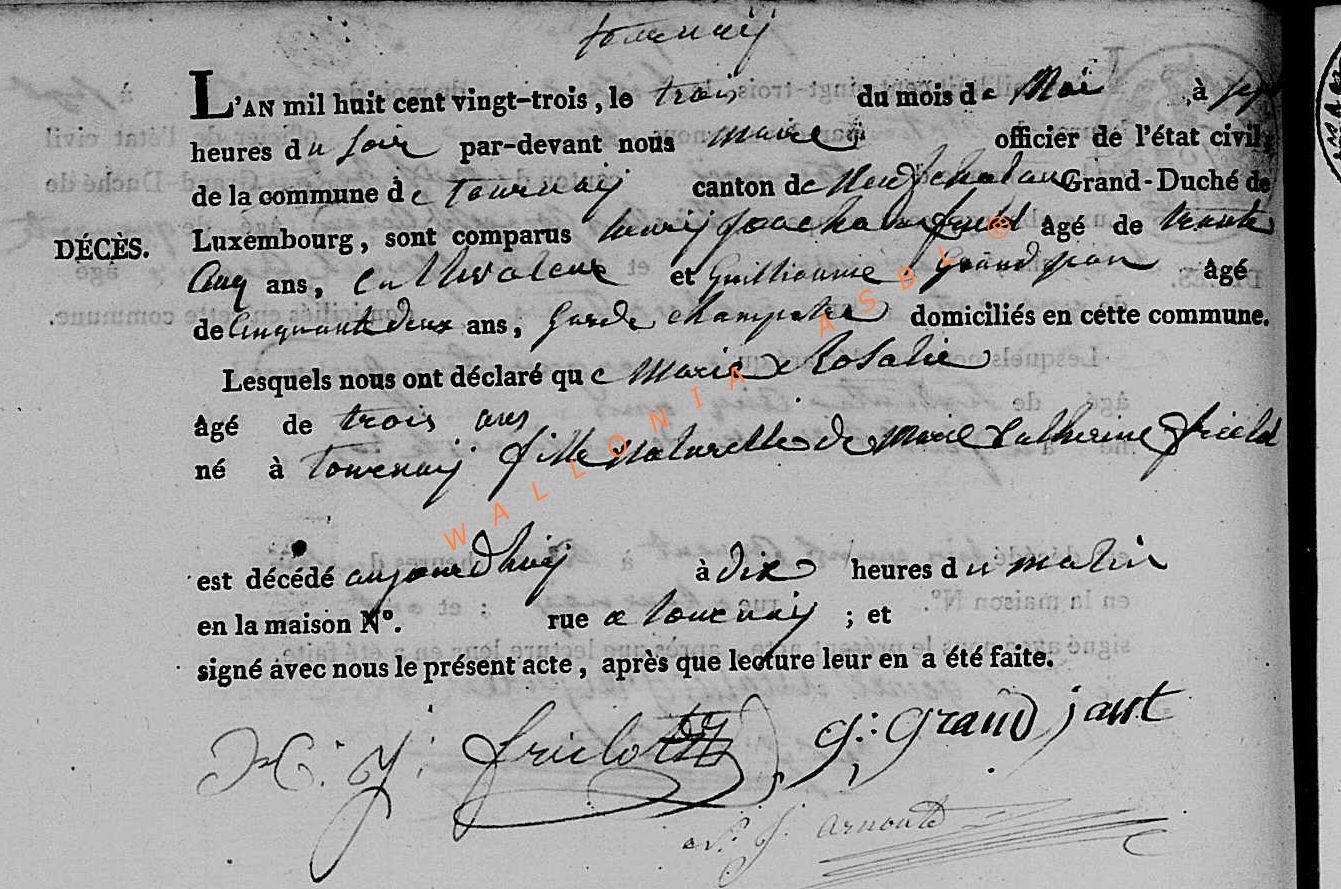 tournay
L'AN mil huit cent vingt-trois, le trois du mois de Mai, à sept
heures du soir par-devant nous maire officier de l'état civil
de la commune de tournay canton de Neufchateau Grand-Duché de
DÉCÈS. Luxembourg, sont comparus henry âgé de trente
Cinq ans, Cultivateur et Guilliaume Grandjean âgé
de Cinquante deux ans, Garde champetre domiciliés en cette commune.
Lesquels nous ont déclaré que Marie Rosalie
âgé de trois ans
né à tournay fille Naturelle de Marie Catherine
est décédé aujourdhuy à dix heures du matin
en la maison N°. rue a tournay ; et
signé avec nous le présent acte, après que lecture leur en a été faite.
H: J: G: Grand jant
J. arnould
WALLONIA ASBL ®